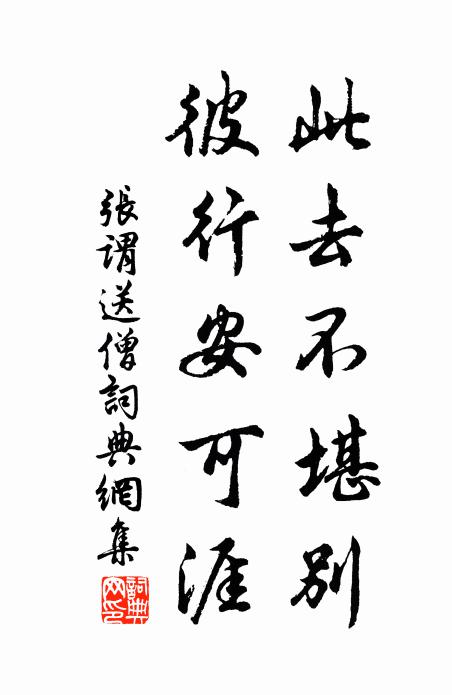 此去不堪別
彼行安可涯
張謂送僧詞典網集
詞典網印